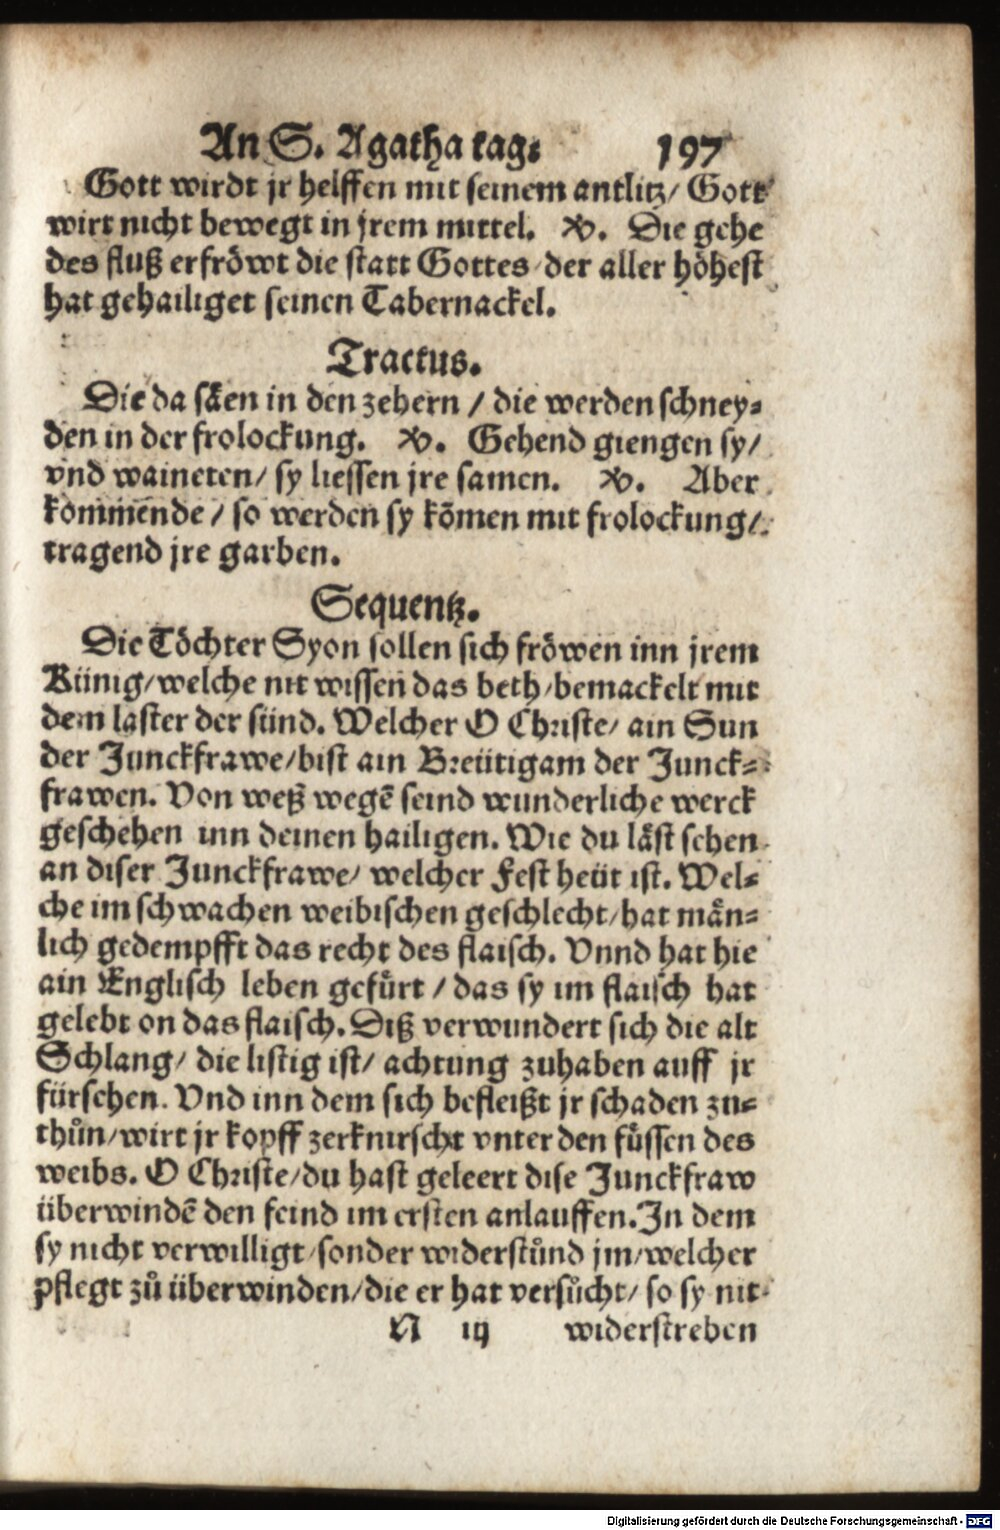 An S. Agatha tag. 197
Gott wirdt jr helffen mit seinem antlitz/ Gott
wirt nicht bewegt in jrem mittel. ℣. Die gehe
des fluß erfröwt die statt Gottes der aller höhest
hat gehailiget seinen Tabernackel.
Tractus.
Die da säen in den zehern / die werden schney⸗
den in der frolockung. ℣. Gehend giengen sy/
vnd waineten/ sy liessen jre samen. ℣. Aber
kommende / so werden sy kom̃en mit frolockung/
tragend jre garben.
Sequentz.
Die Töchter Syon sollen sich fröwen inn jrem
Künig/welche nit wissen das beth/bemackelt mit
dem laster der sünd. Welcher O Christe/ ain Sun
der Junckfrawe/bist ain Breütigam der Junck⸗
frawen. Von weß wegẽ seind wunderliche werck
geschehen inn deinen hailigen. Wie du läst sehen
an diser Junckfrawe/ welcher Fest heüt ist. Wel⸗
che im schwachen weibischen geschlecht/hat män⸗
lich gedempfft das recht des flaisch. Vnnd hat hie
ain Englisch leben gefürt / das sy im flaisch hat
gelebt on das flaisch. Diß verwundert sich die alt
Schlang/ die listig ist/ achtung zuhaben auff jr
fürsehen. Vnd inn dem sich befleißt jr schaden zu⸗
thůn/wirt jr kopff zerknirscht vnter den füssen des
weibs. O Christe/du hast geleert dise Junckfraw
überwindẽ den feind im ersten anlauffen. In dem
sy nicht verwilligt/sonder widerstůnd jm/welcher
pflegt zů überwinden/die er hat versůcht/ so sy nit
N iij widerstreben
Digitalisierung gefördert durch die Deutsche Forschungsgemeinschaft - DFG